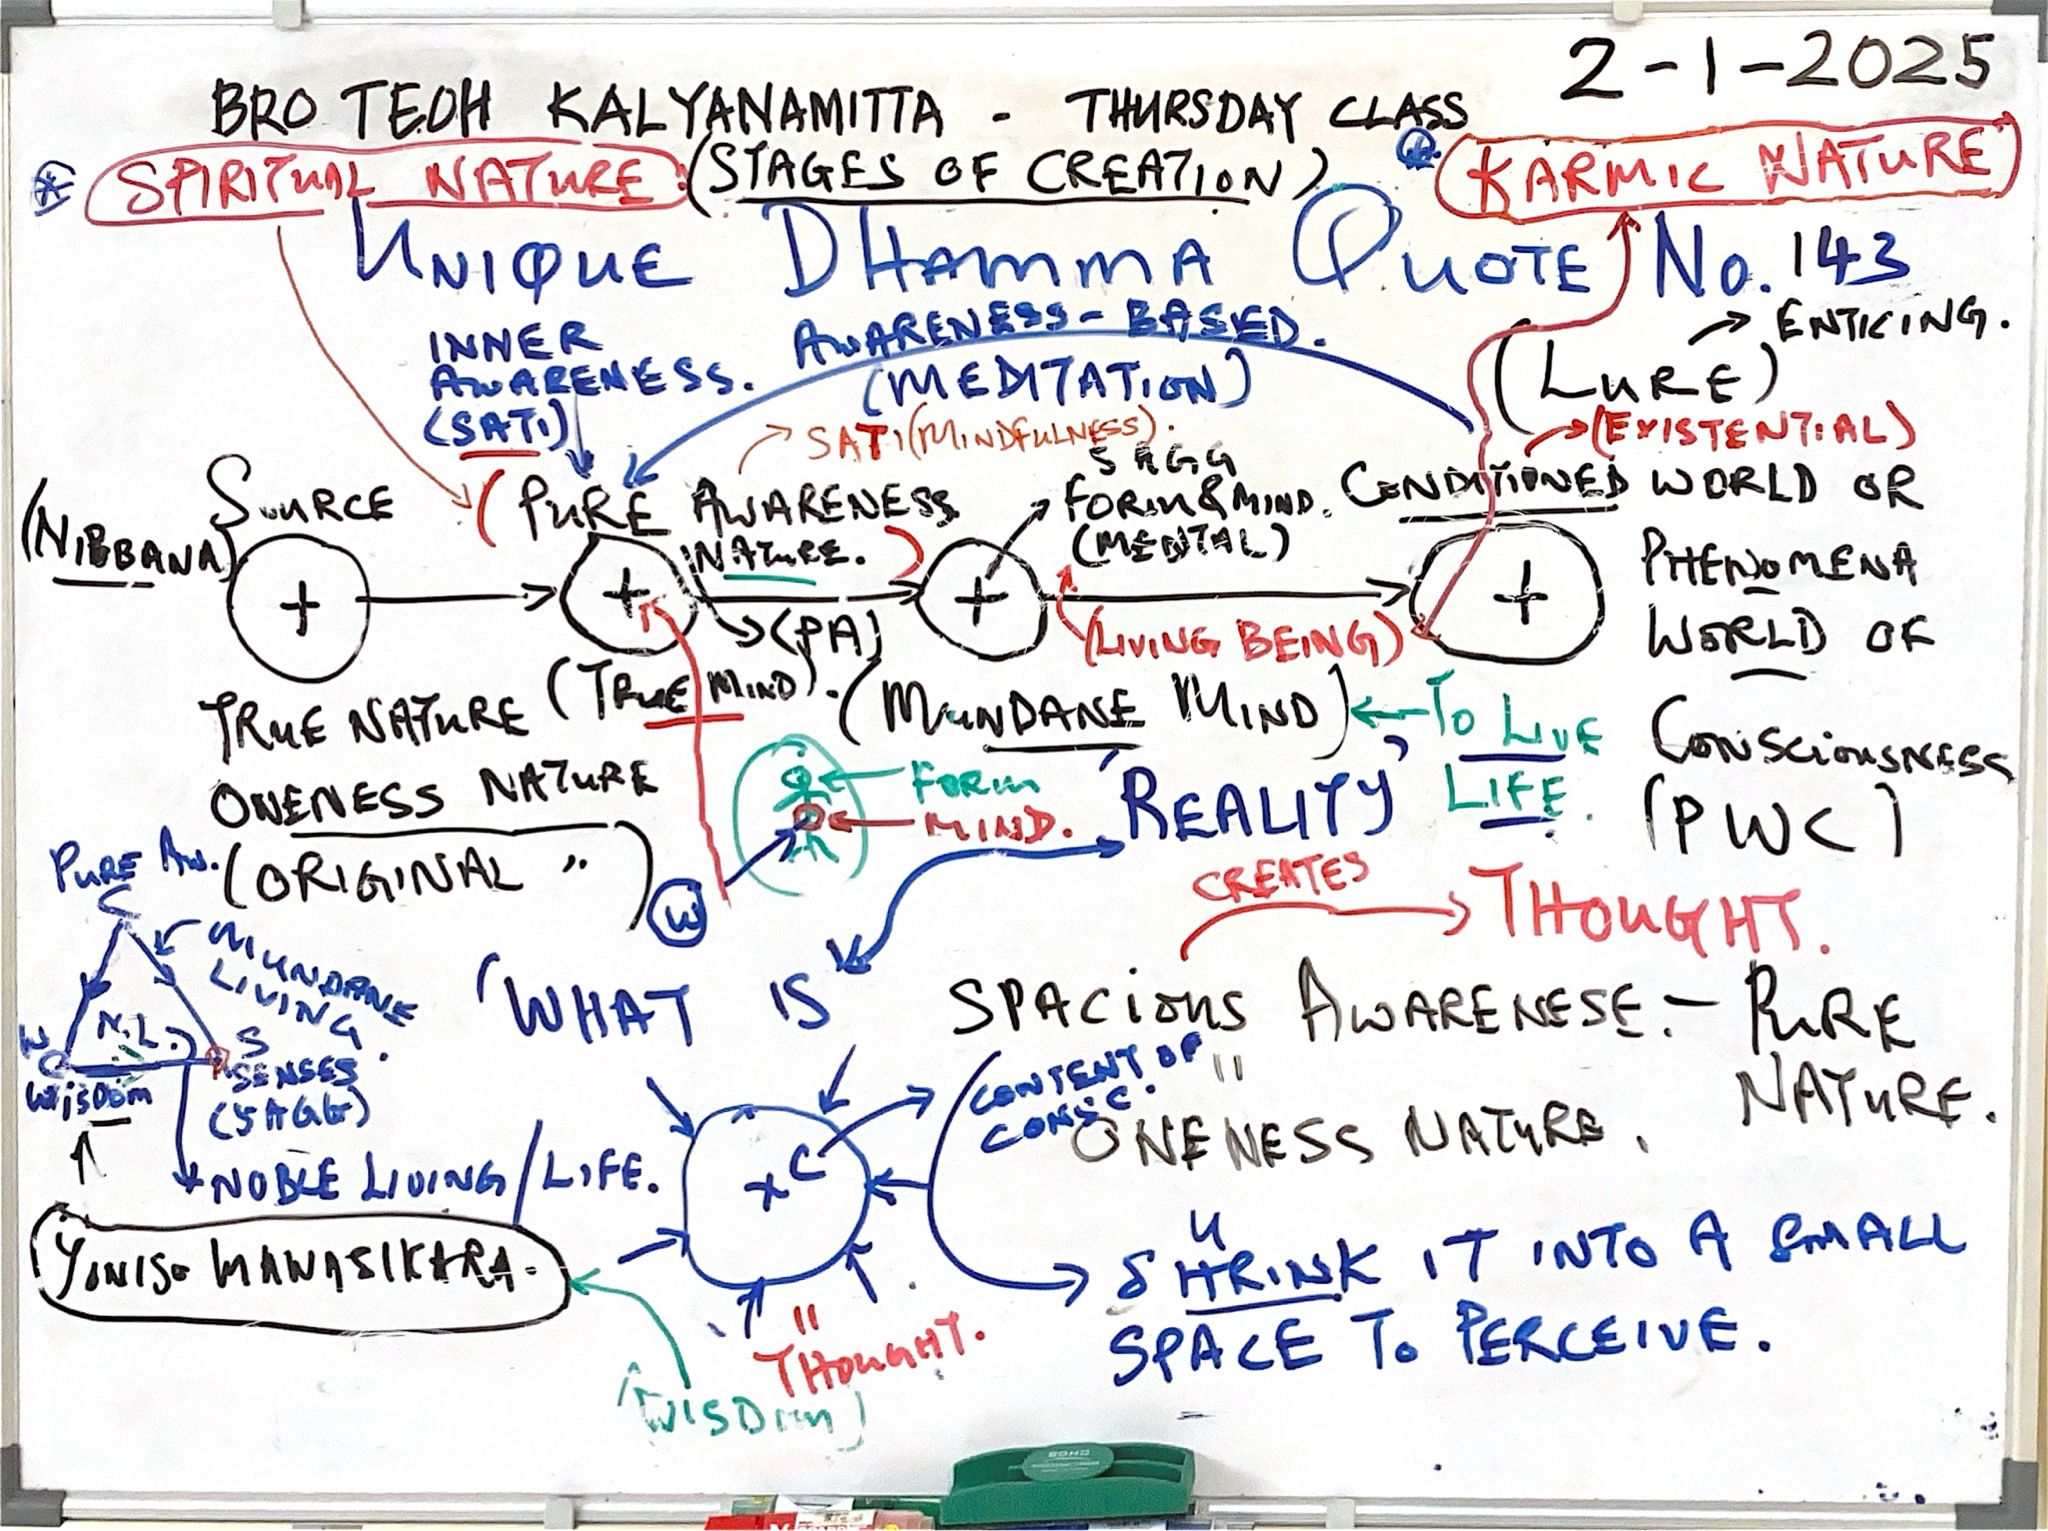 2-1-2025
BRO TEOH KALYANAMITTA - THURSDAY CLASS
SPIRITUAL NATURE : (STAGES OF CREATION)
KARMIC NATURE
UNIQUE DHAMMA QUOTE No. 143
INNER
AWARENESS.
(SATI)
AWARENESS-BASED.
(MEDITATION)
(LURE)
ENTICING.
(EXISTENTIAL)
SATI (MINDFULNESS).
(NIBBANA)
SOURCE
(PURE AWARENESS
NATURE.)
(PA)
5 AGG
FORM & MIND.
(MENTAL)
(LIVING BEING)
CONDITIONED WORLD OR
PHENOMENA
WORLD OF
CONSCIOUSNESS
(PWC)
TRUE NATURE
ONENESS NATURE
(ORIGINAL ")
(TRUE MIND).
(MUNDANE MIND)
TO LIVE
LIFE.
FORM
MIND.
W
'REALITY'
CREATES
THOUGHT.
PURE AW.
C
MUNDANE
LIVING
N.L.
W
WISDOM
S
SENSES
(5 AGG)
NOBLE LIVING/LIFE.
YONISO MANASIKARA.
(WISDOM)
'WHAT IS
SPACIOUS AWARENESE. - PURE
NATURE.
"
ONENESS NATURE.
CONTENT OF
CONSC.
+ C
"
THOUGHT.
U
SHRINK IT INTO A SMALL
SPACE TO PERCEIVE.